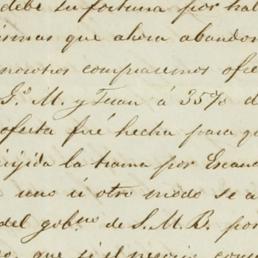 debe su fortuna por hab
mismas que ahora abandon
nosotros comprasemos ofre
G.º M. y Juan á 35% d
oferta fué hecha para qu
irijida la trama por Escand
uno ú otro modo se a
del gob.no de S. M. B. por
que si el precio com